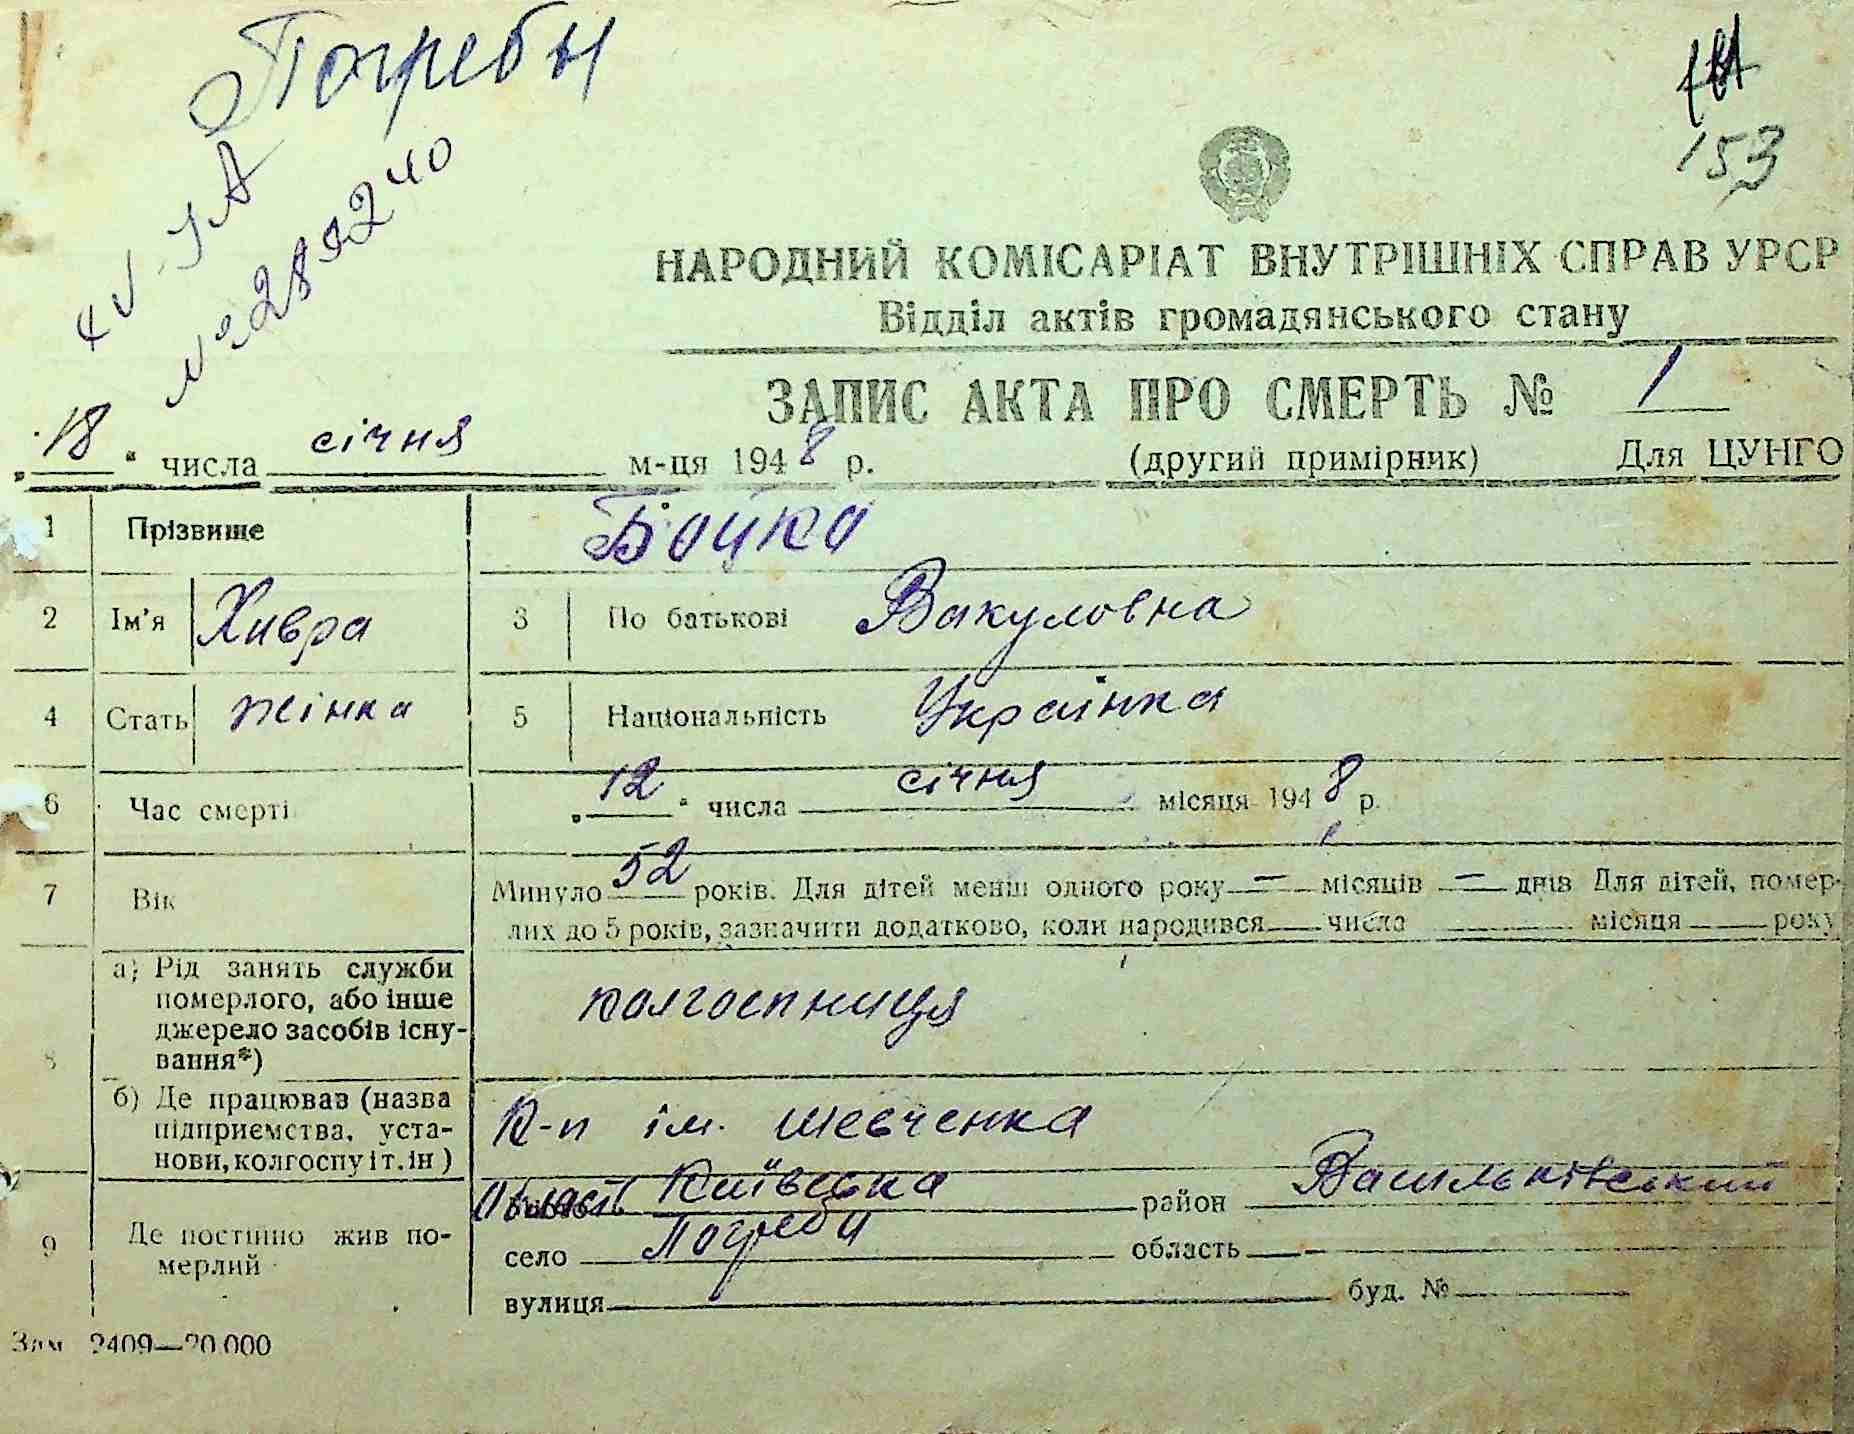 Погребы
153
4V-ЈА
№ 283240
НАРОДНИЙ КОМІСАРІАТ ВНУТРІШНІХ СПРАВ УРСР
Відділ актів громадянського стану
ЗАПИС АКТА ПРО СМЕРТЬ № 1
„18“ числа січня м-ця 1948 р. (другий примірник) Для ЦУНГО
1 Прізвище Бойко
2 Ім’я Хивря 3 По батькові Вакуловна
4 Стать жінка 5 Національність Українка
6 Час смерті „12“ числа січня місяця 1948 р.
7 Вік Минуло 52 років. Для дітей менш одного року — місяців — днів Для дітей, помер-
лих до 5 років, зазначити додатково, коли народився числа місяця року
8 а) Рід занять служби померлого, або інше джерело засобів існування*) колгоспниця
б) Де працював (назва підприємства, установи, колгоспу і т. ін) К-п ім. Шевченка
9 Де постійно жив померлий Область Київська район Васильківський
село Погреби область
вулиця буд. №
Зам 2409—20.000